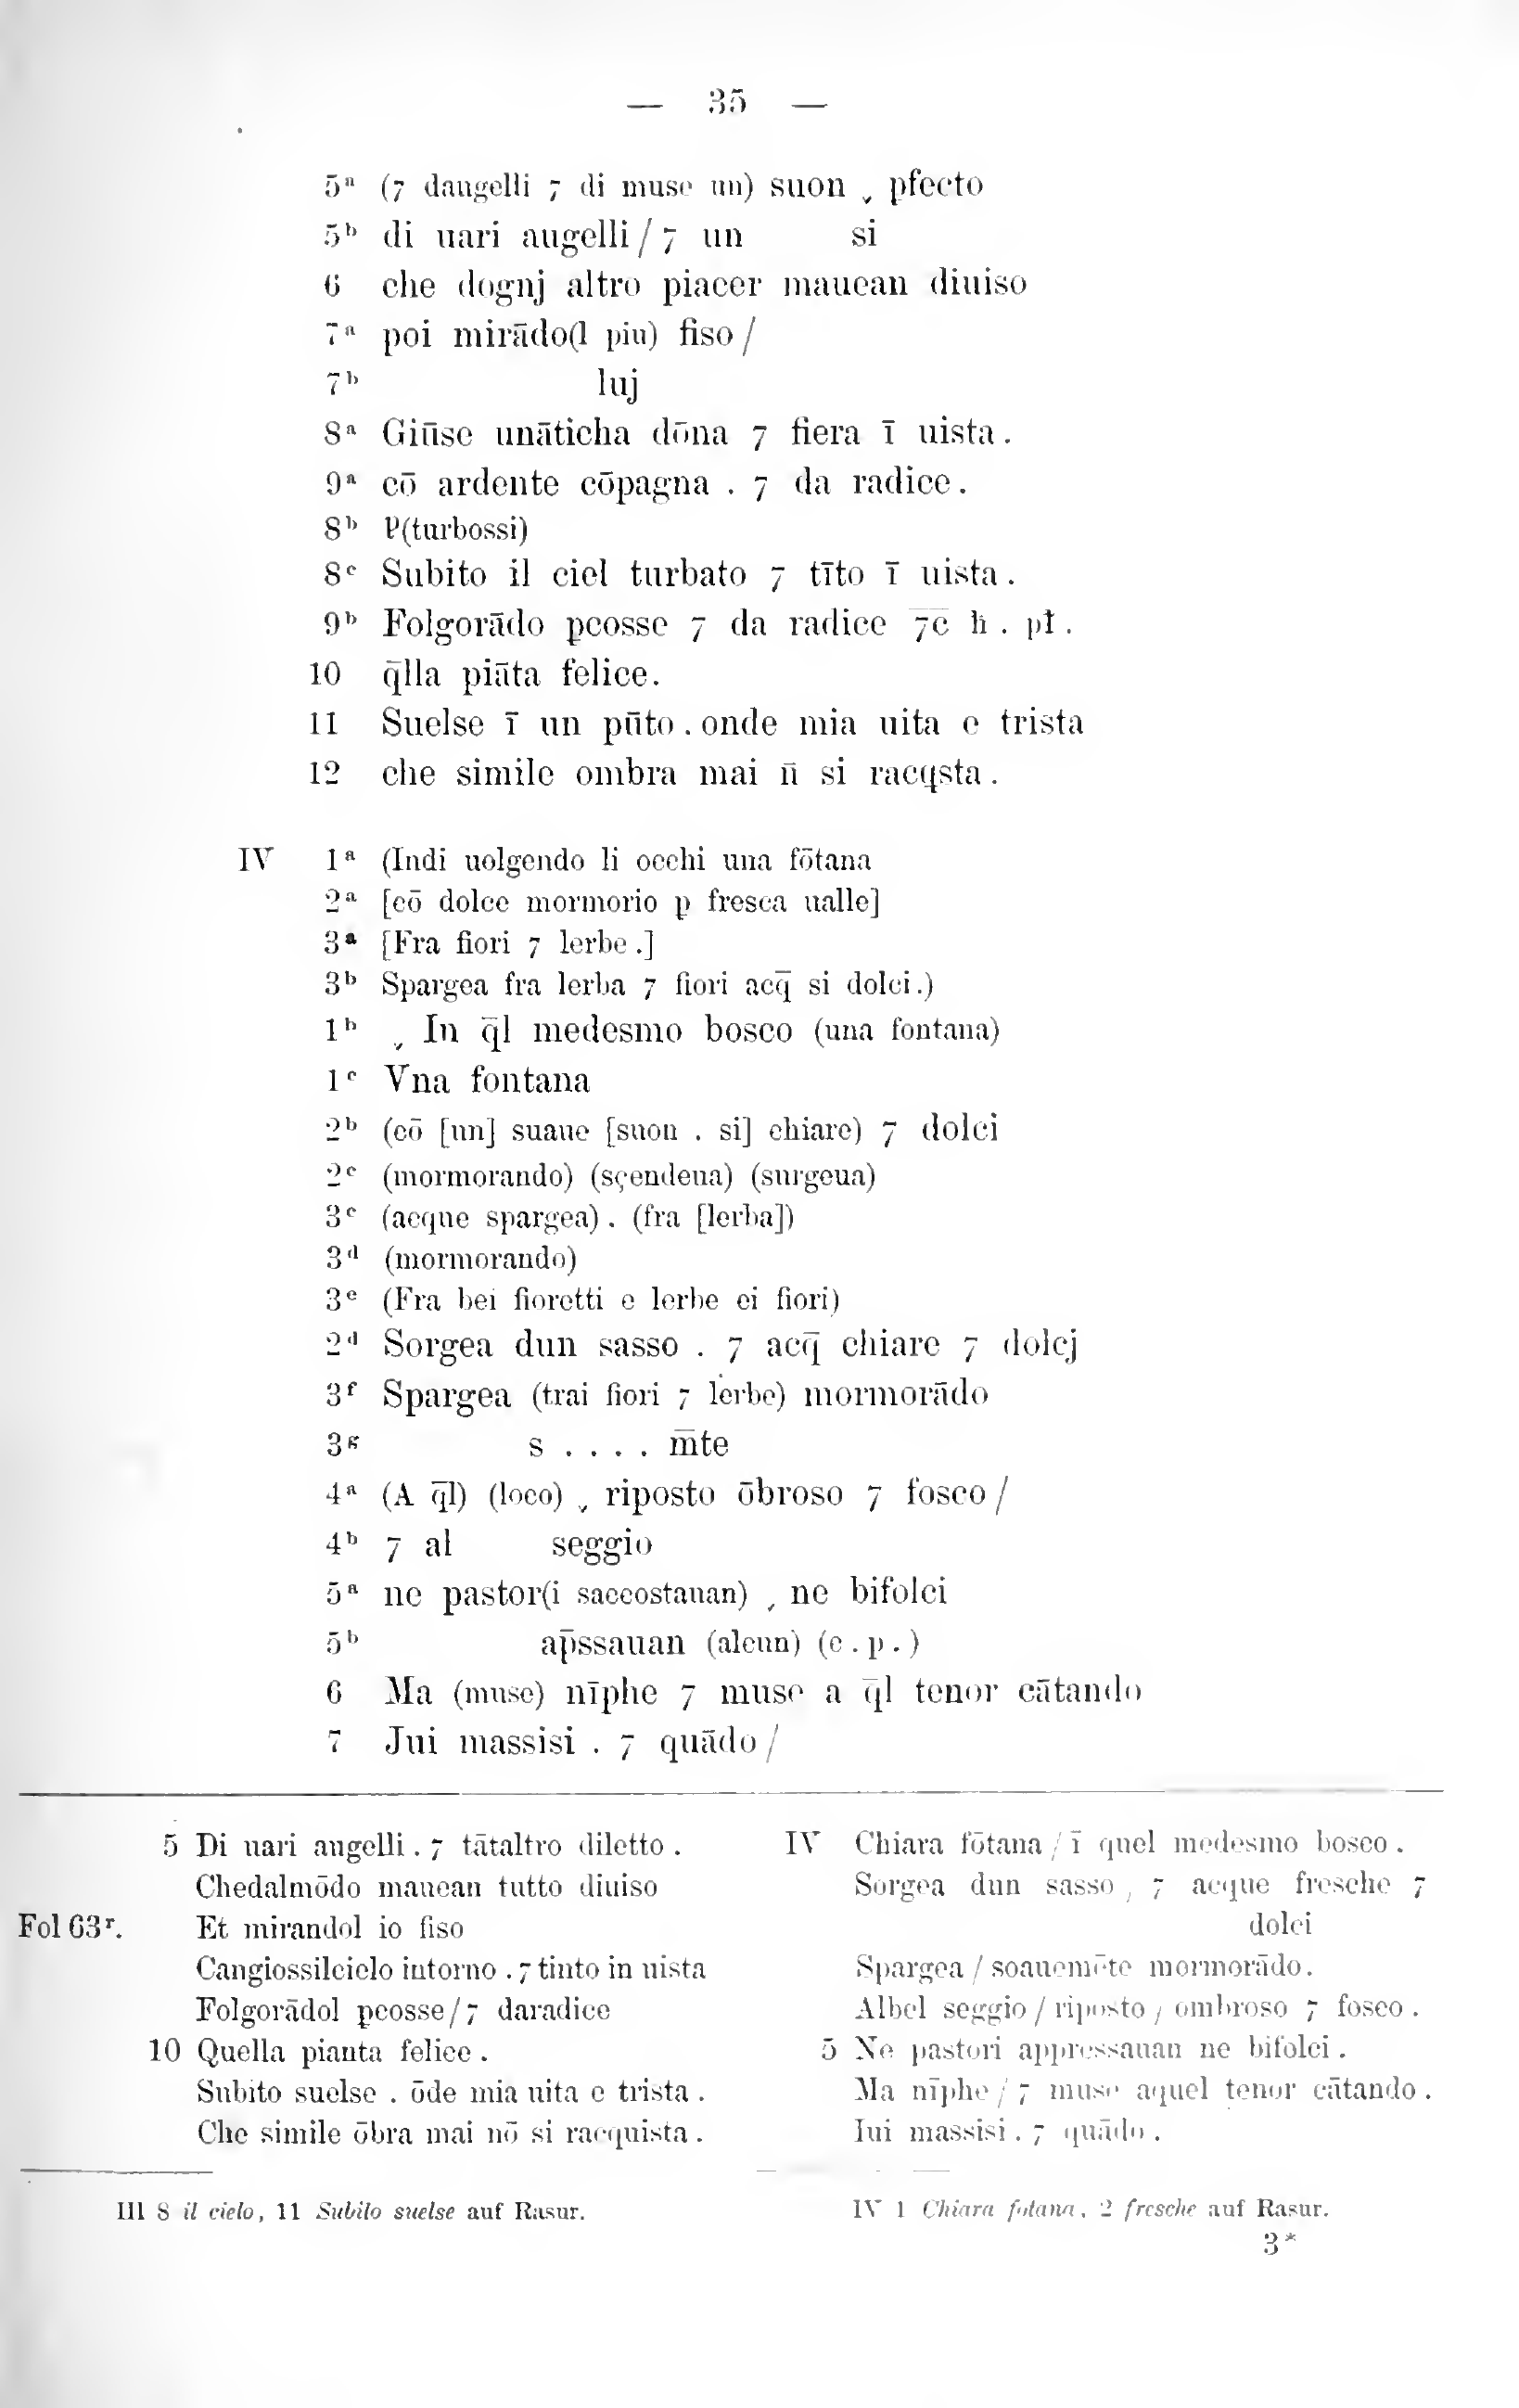 — 35 —
5ª (7 daugelli 7 di muse un) suon ˬ pfecto
5ᵇ di uari augelli / 7 un si
6 che dognj altro piacer mauean diuiso
7ª poi mirādo(l piu) fiso /
7ᵇ luj
8ª Giūse unāticha dōna 7 fiera ī uista.
9ª cō ardente cōpagna . 7 da radice.
8ᵇ (turbossi)
8ᶜ Subito il ciel turbato 7 tīto ī uista.
9ᵇ Folgorādo ꝑcosse 7 da radice 7̄c̄ h . pł.
10 q̄lla piāta felice.
11 Suelse ī un pūto . onde mia uita e trista
12 che simile ombra mai n̄ si racqsta.
IV 1ª (Indi uolgendo li occhi una fōtana
2ª [cō dolce mormorio ꝑ fresca ualle]
3ª [Fra fiori 7 lerbe.]
3ᵇ Spargea fra lerba 7 fiori acq̄ si dolci.)
1ᵇ ˬ In q̄l medesmo bosco (una fontana)
1ᶜ Vna fontana
2ᵇ (cō [un] suaue [suon . si] chiare) 7 dolci
2ᶜ (mormorando) (sçendeua) (surgeua)
3ᶜ (acque spargea). (fra [lerba])
3ᵈ (mormorando)
3ᵉ (Fra bei fioretti e lerbe ei fiori)
2ᵈ Sorgea dun sasso . 7 acq̄ chiare 7 dolcj
3ᶠ Spargea (trai fiori 7 lerbe) mormorādo
3ᵍ s . . . . m̄te
4ª (A q̄l) (loco) ˬ riposto ōbroso 7 fosco /
4ᵇ 7 al seggio
5ª ne pastor(i saccostauan) ˬ ne bifolci
5ᵇ ap̄ssauan (alcun) (c . p . )
6 Ma (muse) nīphe 7 muse a q̄l tenor cātando
7 Jui massisi . 7 quādo /
5 Di uari augelli . 7 tātaltro diletto.
Chedalmōdo mauean tutto diuiso
Fol 63ʳ. Et mirandol io fiso
Cangiossilcielo intorno . 7 tinto in uista
Folgorādol ꝑcosse / 7 daradice
10 Quella pianta felice.
Subito suelse . ōde mia uita e trista.
Che simile ōbra mai nō si racquista.
IV Chiara fōtana / ī quel medesmo bosco.
Sorgea dun sasso , 7 acque fresche 7
dolci
Spargea / soauemēte mormorādo.
Albel seggio / riposto / ombroso 7 fosco.
5 Ne pastori appressauan ne bifolci.
Ma nīphe / 7 muse aquel tenor cātando.
Iui massisi . 7 quādo.
III 8 il cielo, 11 Subito suelse auf Rasur.
IV 1 Chiara fotana, 2 fresche auf Rasur.
3*